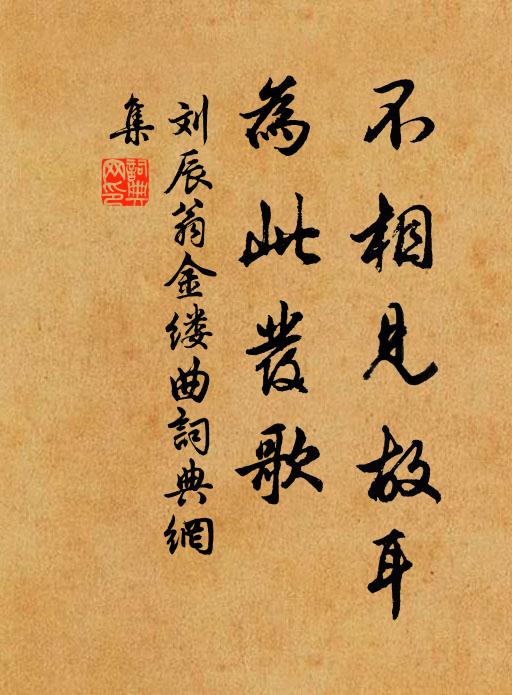 不相見故耳
為此發歌
刘辰翁金缕曲詞典網
集
詞典网印